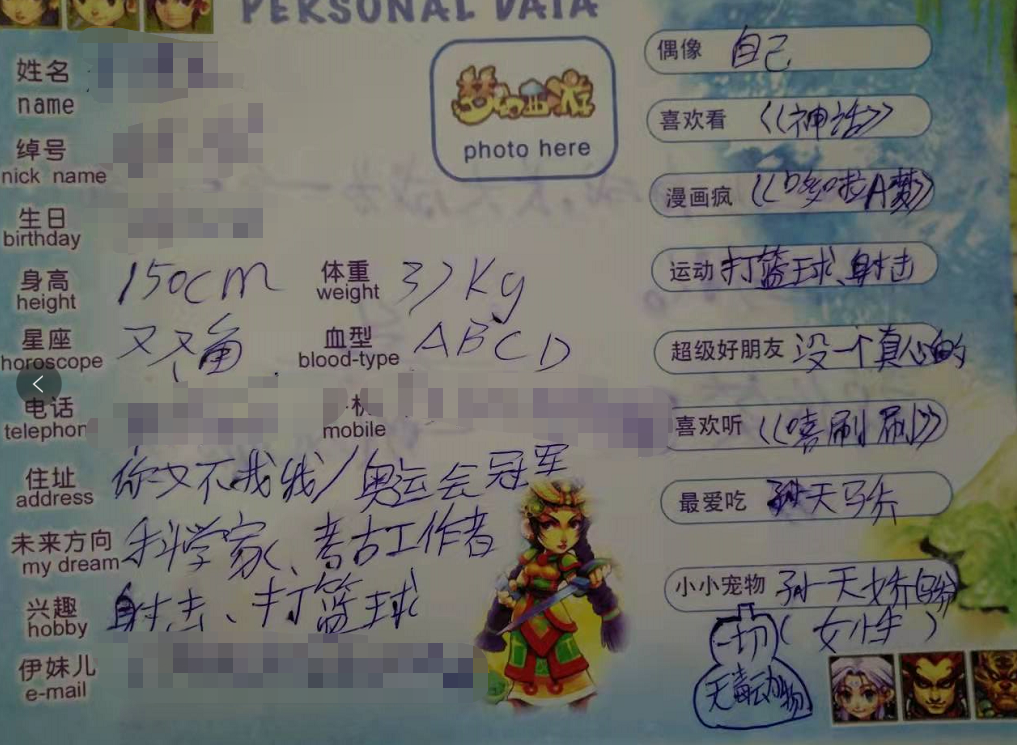 PERSONAL DATA
姓名
name
绰号
nick name
生日
birthday
身高 150cm 体重 37Kg
height weight
星座 双鱼 血型 ABCD
horoscope blood-type
电话
telephon
mobile
住址 你又不找我/奥运会冠军
address
未来方向 科学家、考古工作者
my dream
兴趣 射击、打篮球
hobby
伊妹儿
e-mail
梦幻西游
photo here
偶像 自己
喜欢看 《神话》
漫画疯 《哆啦A梦》
运动 打篮球、射击
超级好朋友 没一个真心的
喜欢听 《嘻刷刷》
最爱吃 天马
小小宠物
一切(女性)
无毒动物